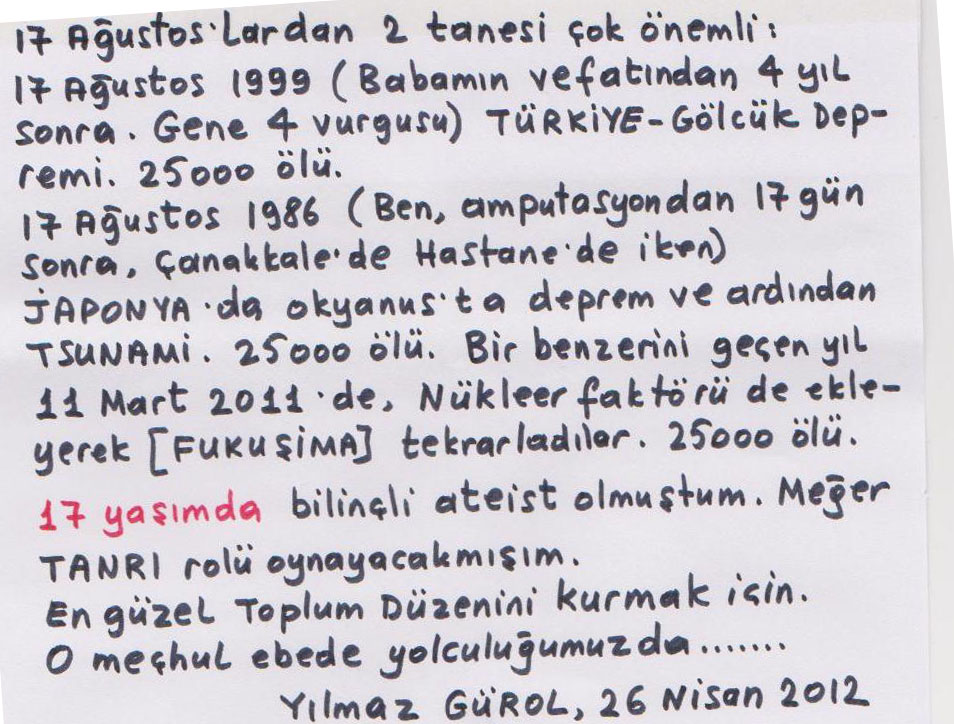 17 Ağustos'Lardan 2 tanesi çok önemli:
17 Ağustos 1999 (Babamın vefatından 4 yıl
sonra. Gene 4 vurgusu) TÜRKİYE-Gölcük Dep-
remi. 25000 ölü.
17 Ağustos 1986 (Ben, amputasyondan 17 gün
sonra, Çanakkale'de Hastane'de iken)
JAPONYA'da okyanus'ta deprem ve ardından
TSUNAMİ. 25000 ölü. Bir benzerini geçen yıl
11 Mart 2011'de, Nükleer faktörü de ekle-
yerek [FUKUŞİMA] tekrarladılar. 25000 ölü.
17 yaşımda bilinçli ateist olmuştum. Meğer
TANRI rolü oynayacakmışım.
En güzel Toplum Düzenini kurmak için.
O meçhul ebede yolculuğumuzda.......
Yılmaz GÜROL, 26 Nisan 2012